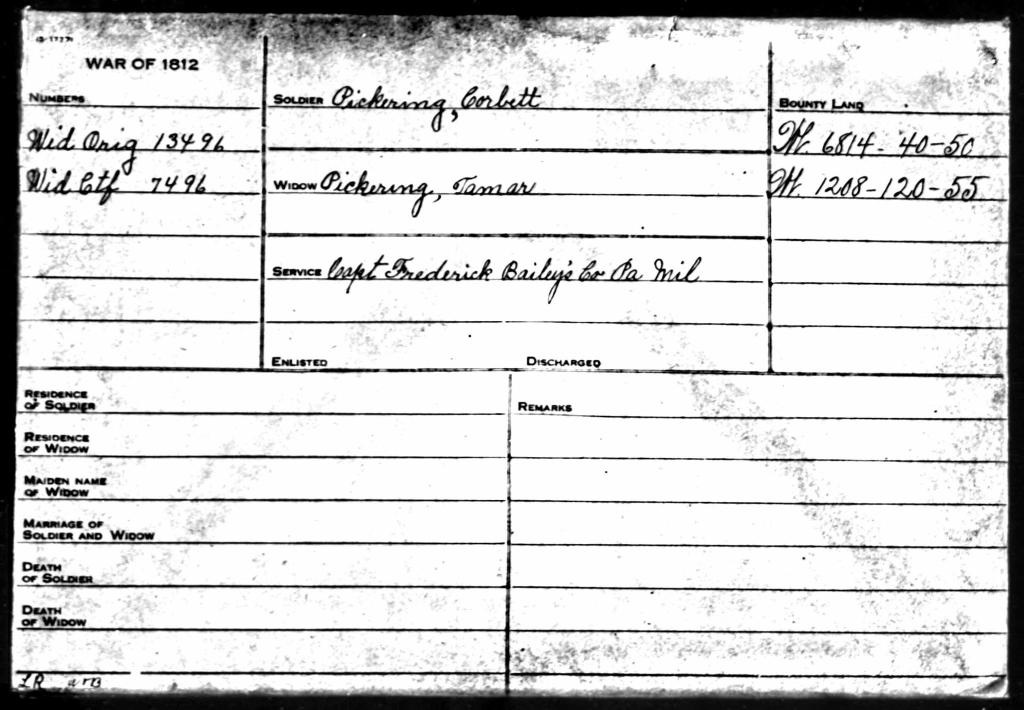 WAR OF 1812
NUMBERS
Wid Orig 13496
Wid Ctf 7496
SOLDIER Pickering, Corbett
WIDOW Pickering, Tamar
SERVICE Capt Frederick Bailey's Co Pa Mil
ENLISTED DISCHARGED
BOUNTY LAND
Wt. 6814 - 40-50
Wt. 1208-120-55
RESIDENCE
OF SOLDIER
RESIDENCE
OF WIDOW
MAIDEN NAME
OF WIDOW
MARRIAGE OF
SOLDIER AND WIDOW
DEATH
OF SOLDIER
DEATH
OF WIDOW
REMARKS